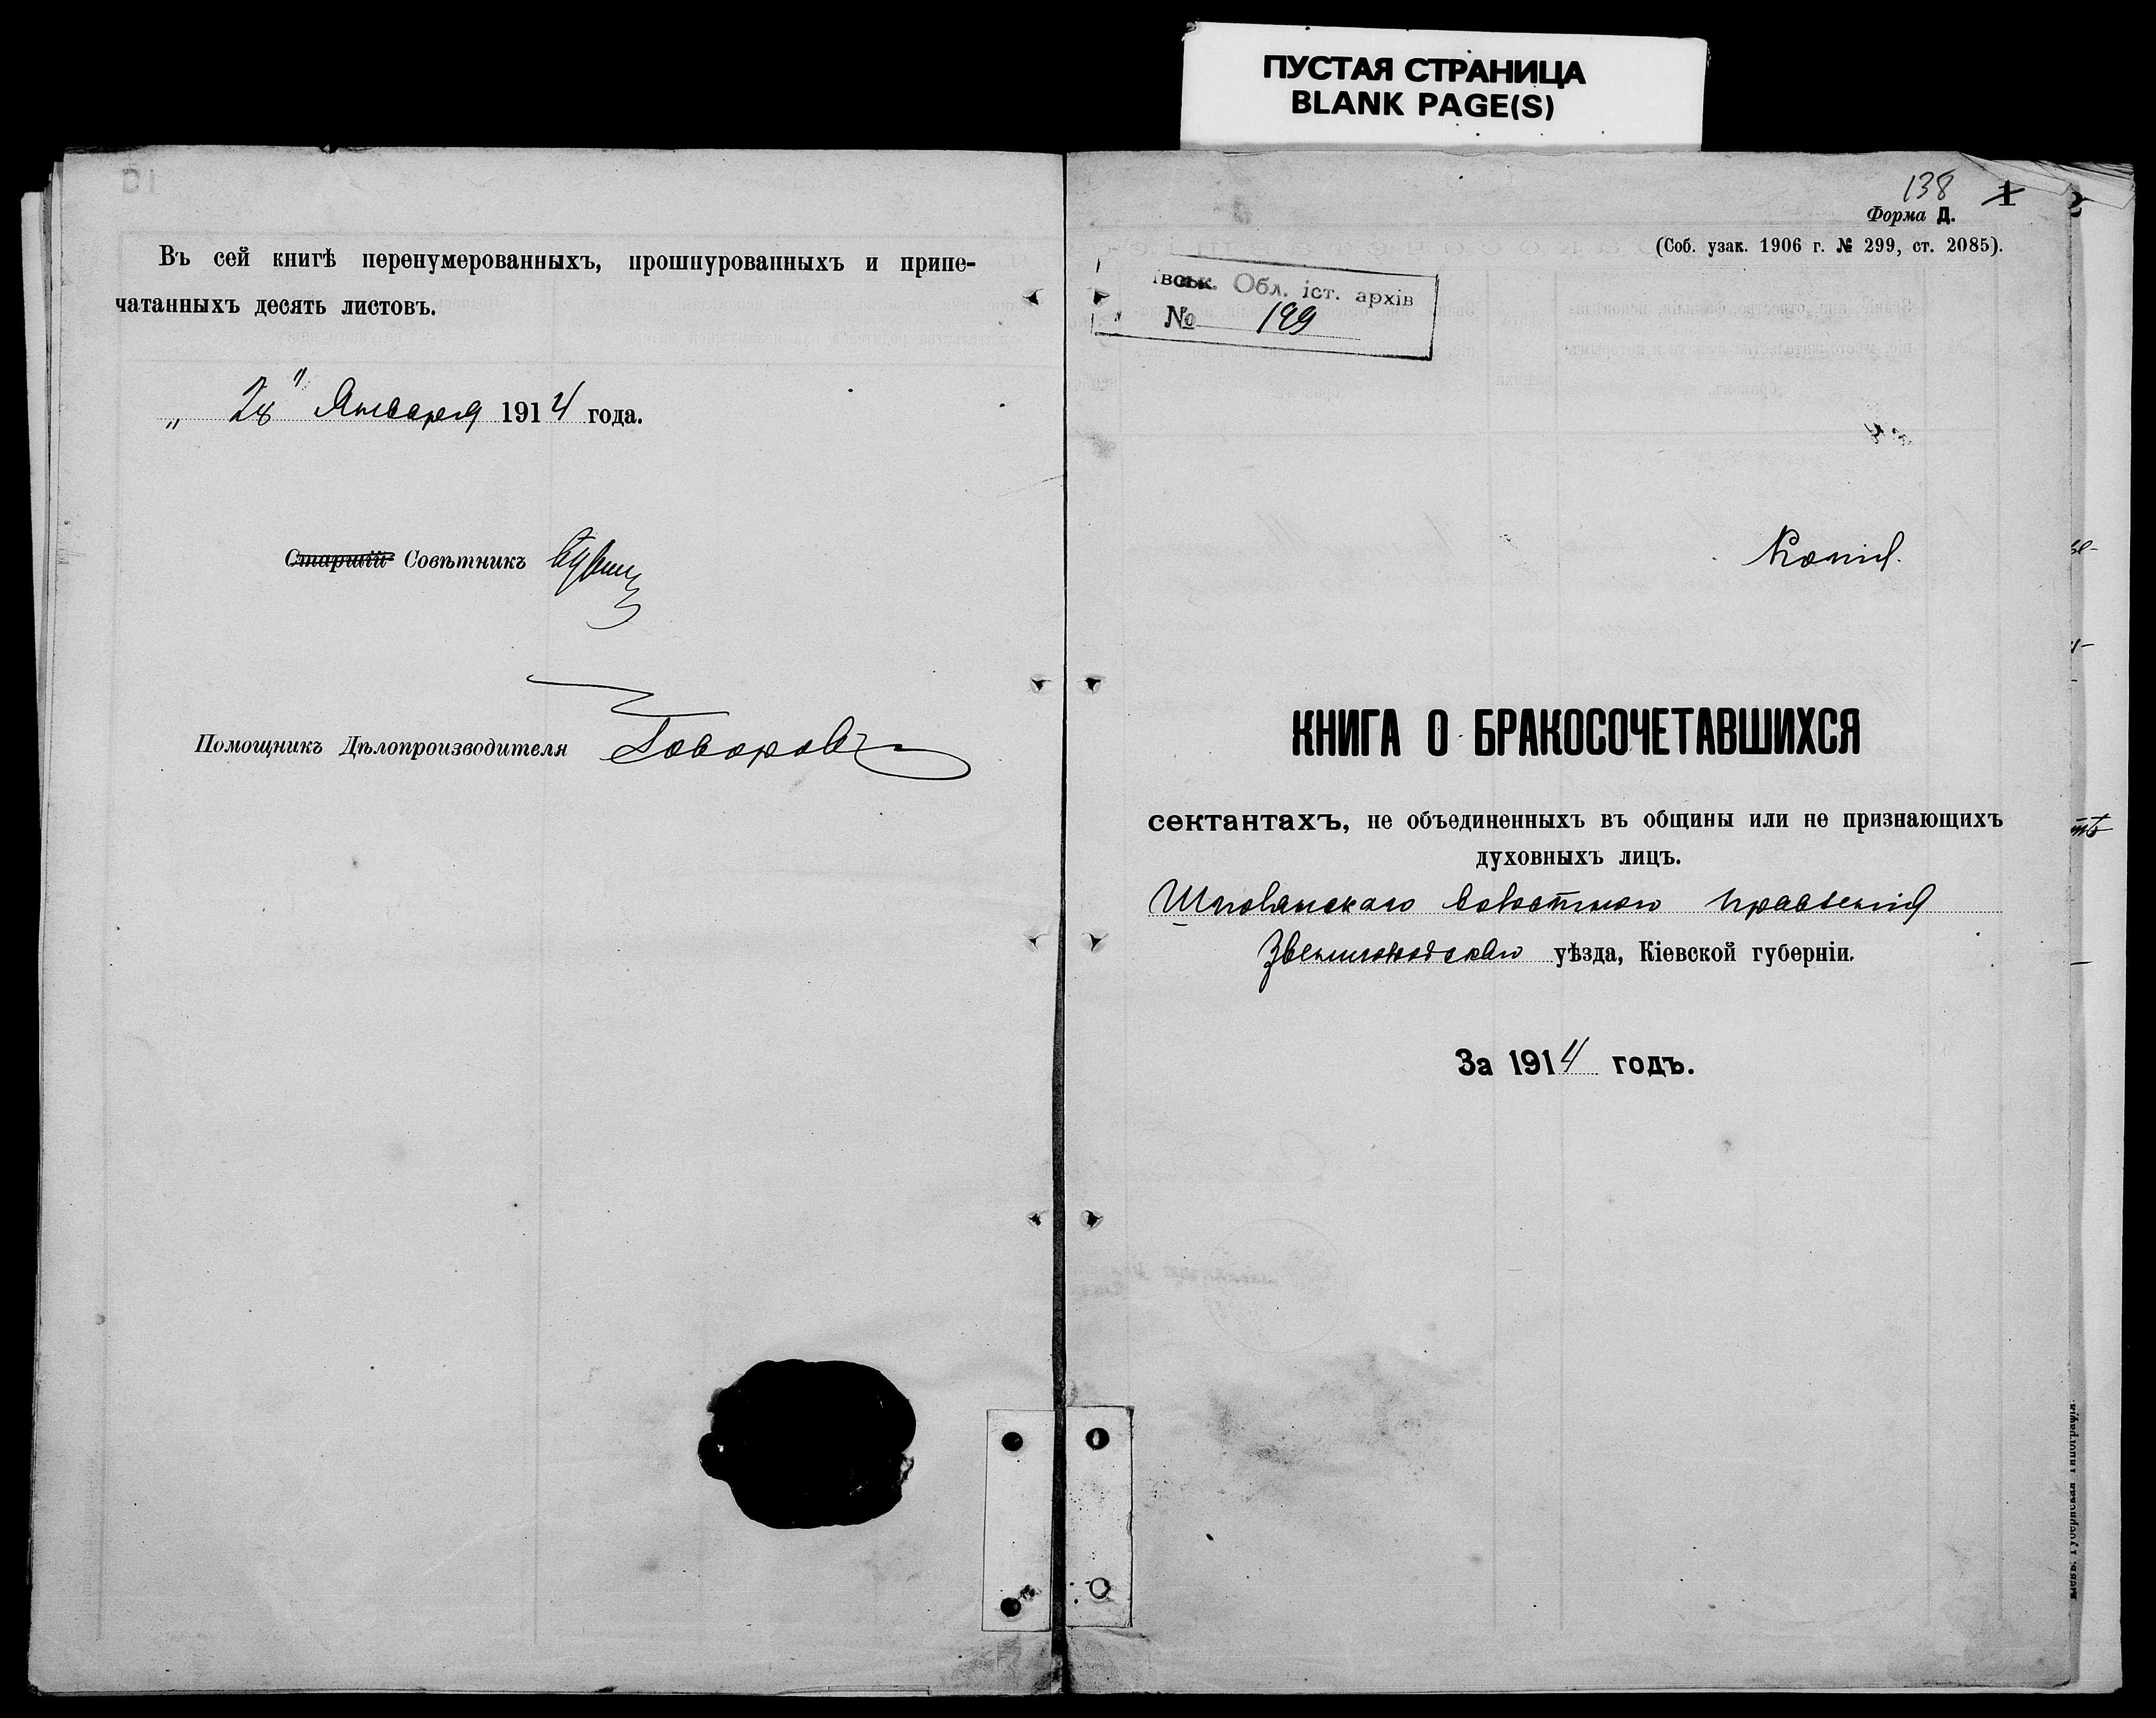 ПУСТАЯ СТРАНИЦА
BLANK PAGE(S)
Въ сей книгѣ перенумерованныхъ, прошнурованныхъ и припе-
чатанныхъ десять листовъ.
„ 28 " Января 1914 года.
Старшій Совѣтникъ
Помощникъ Дѣлопроизводителя Говоровъ
138 1
Форма Д.
(Соб. узак. 1906 г. № 299, ст. 2085).
івськ. Обл. іст. архів
№ 199
Копія.
КНИГА О БРАКОСОЧЕТАВШИХСЯ
сектантахъ, не объединенныхъ въ общины или не признающихъ
духовныхъ лицъ.
Шполянскаго волостного правленія
Звенигородскаго уѣзда, Кіевской губерніи.
За 1914 годъ.
Губернская Типографія.